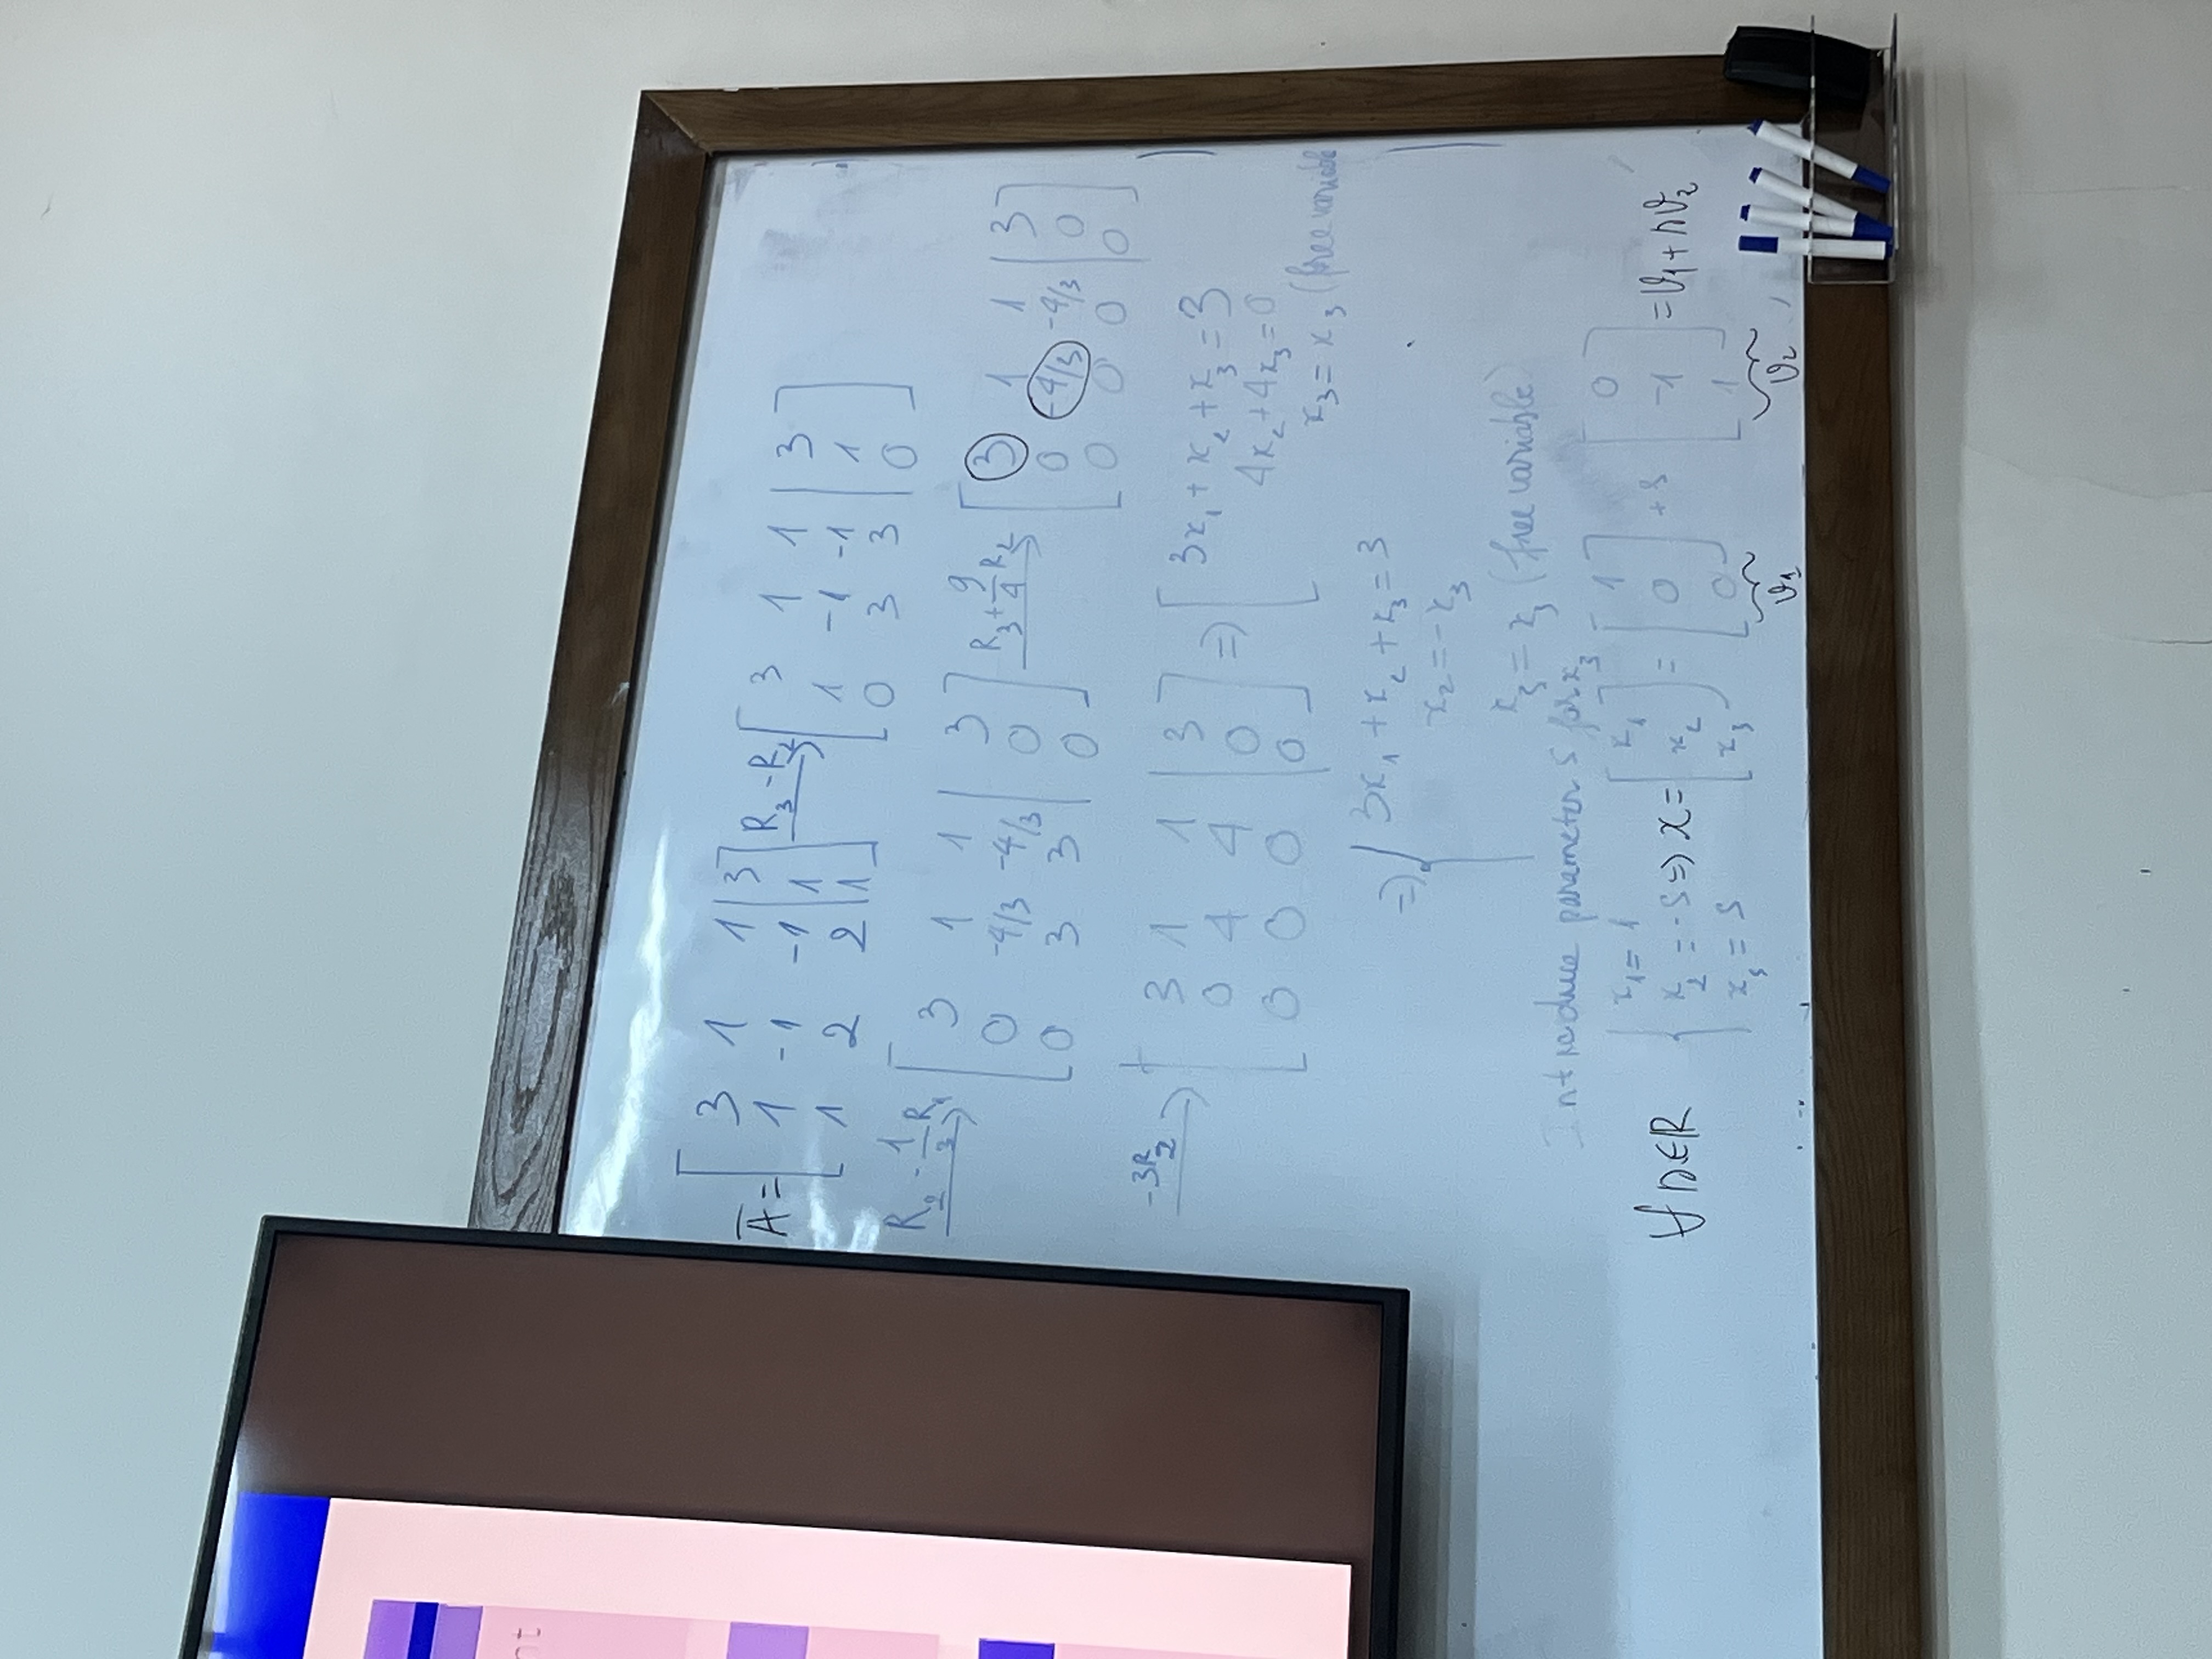 nt
A̅ = [ 3 1 1 | 3 ; 1 -1 -1 | 1 ; 1 2 2 | 1 ] R₃ - R₂ → [ 3 1 1 | 3 ; 1 -1 -1 | 1 ; 0 3 3 | 0 ]
R₂ - 1/3 R₁ → [ 3 1 1 | 3 ; 0 -4/3 -4/3 | 0 ; 0 3 3 | 0 ] R₃ + 9/4 R₂ → [ 3 1 1 | 3 ; 0 -4/3 -4/3 | 0 ; 0 0 0 | 0 ]
-3R₂ → [ 3 1 1 | 3 ; 0 4 4 | 0 ; 0 0 0 | 0 ] ⇒ [ 3x₁ + x₂ + x₃ = 3
4x₂ + 4x₃ = 0
x₃ = x₃ (free variable
⇒ { 3x₁ + x₂ + x₃ = 3
x₂ = -x₃
x₃ = x₃ (free variable)
Introduce parameter s for x₃
∀ s ∈ R { x₁ = 1 ; x₂ = -s ; x₃ = s ⇒ x = [ x₁ ; x₂ ; x₃ ] = [ 1 ; 0 ; 0 ] + s [ 0 ; -1 ; 1 ] = v₁ + s v₂
v₁ v₂